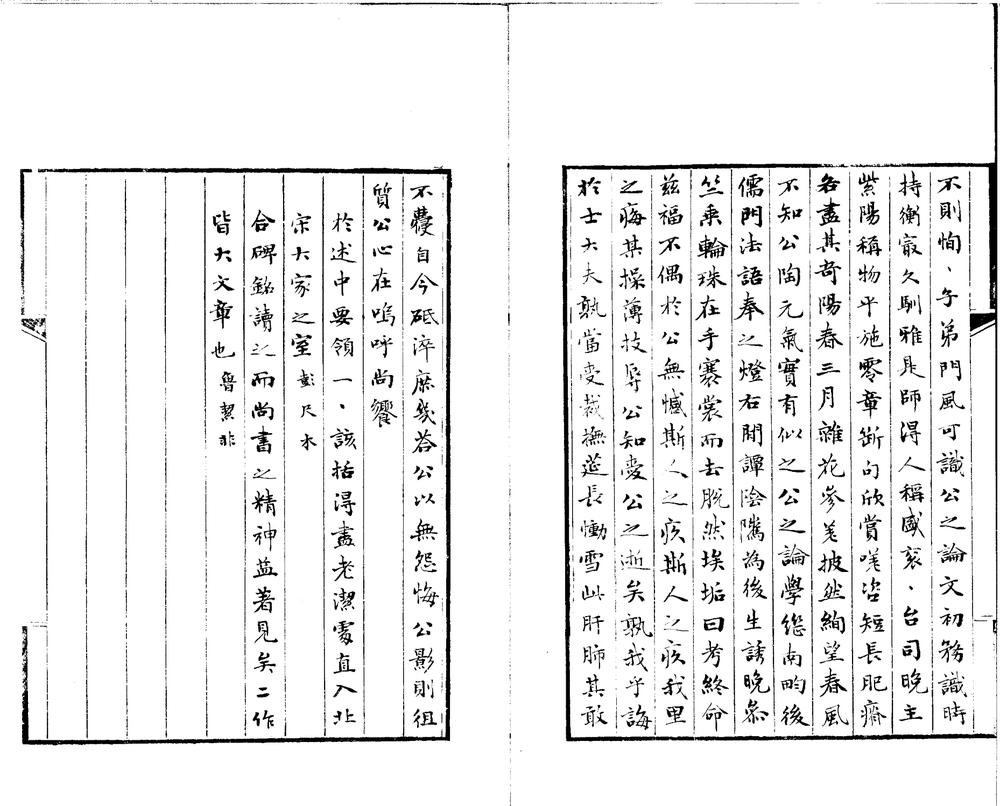 不則恂、子弟門風可識公之論文初務識時
持衡寂久馴雅是師得人稱盛衮、台司晚主
紫陽稱物平施零章斷句欣賞嗟咨短長肥瘠
各盡其奇陽春三月雜花參差披然絢望春風
不知公陶元氣實有似之公之論學繼南畇後
儒門法語奉之燈右間譚陰隲為後生誘晚
竺乘輪珠在手褰裳而去脫然埃垢曰考終命
茲福不偶於公無憾斯人之疚斯人之疚我里
之痗某操薄技辱公知愛公之逝矣孰我乎誨
於士大夫孰當愛裁撫莚長慟雪此肝肺其敢
不蘉自今砥淬庶幾答公以無怨悔公影則徂
質公心在嗚呼尚饗
於述中要領一、該括得盡老潔處直入北
宋大家之室 彭尺木
合碑銘讀之而尚書之精神益著見矣二作
皆大文章也 魯絜非